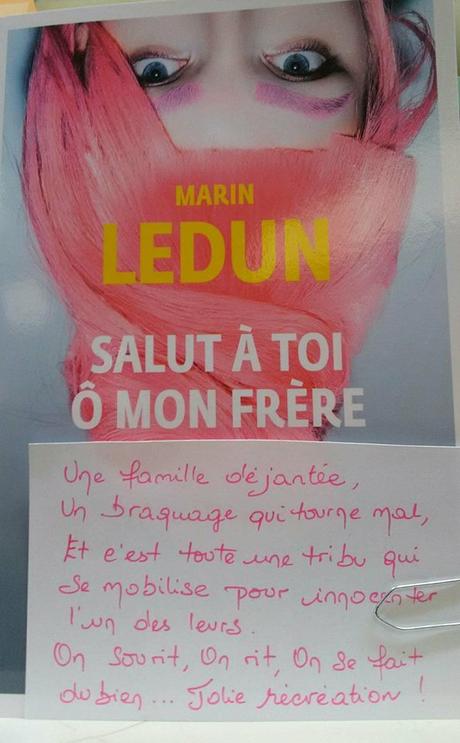 MARIN
LEDUN
SALUT À TOI
Ô MON FRÈRE
Une famille déjantée,
Un braquage qui tourne mal,
Et c'est toute une tribu qui
se mobilise pour innocenter
l'un des leurs.
On sourit, On rit, On se fait
du bien... Jolie récréation !